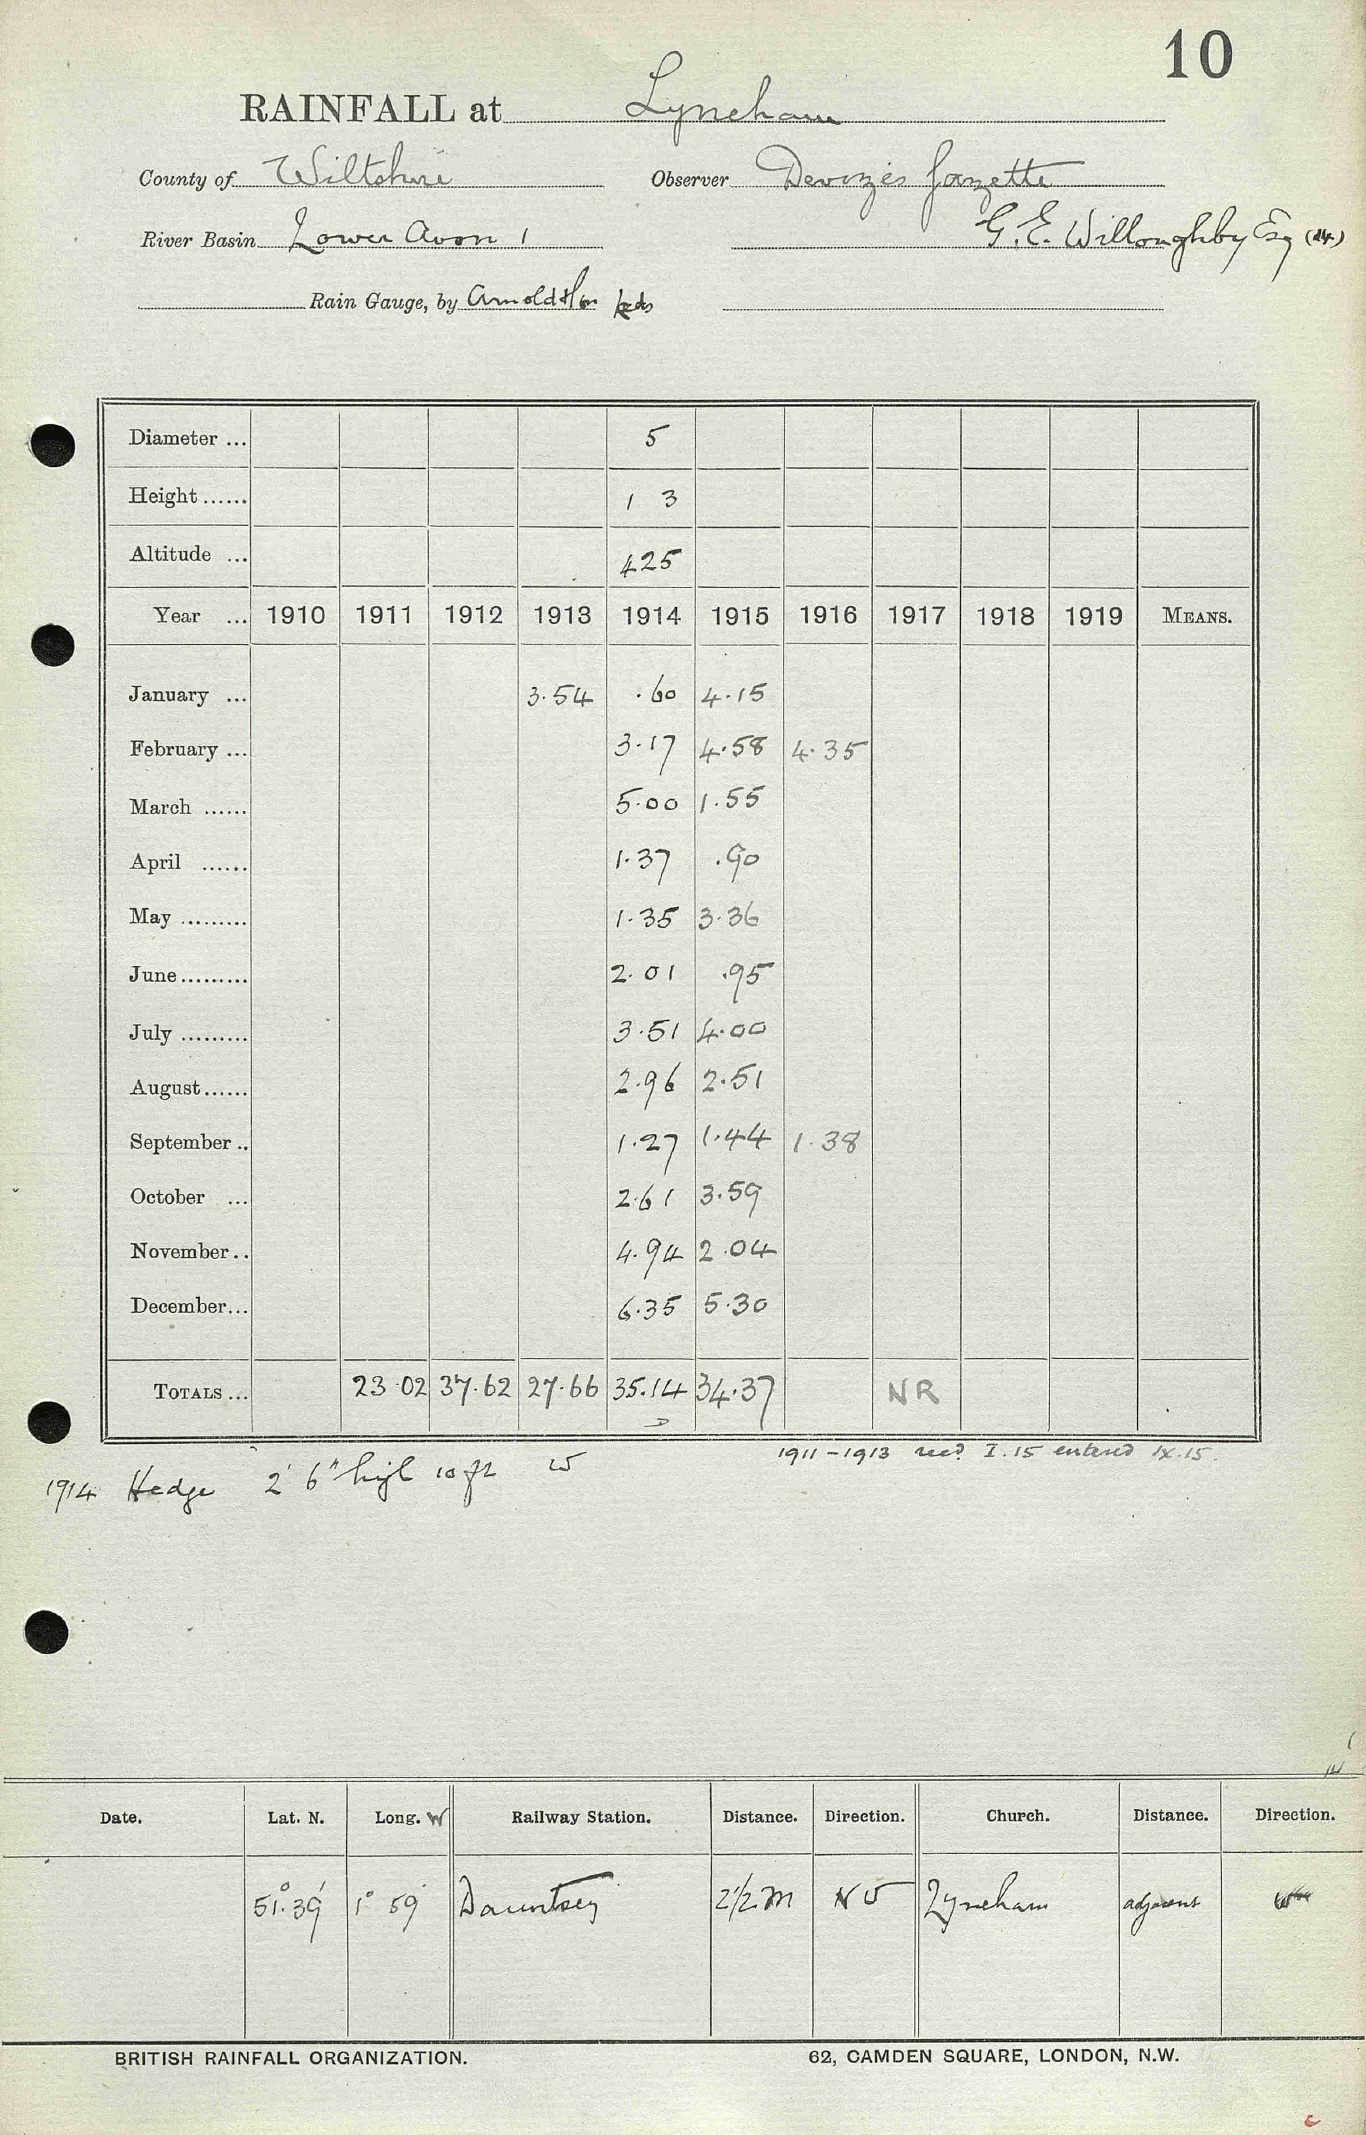 10
RAINFALL at Lyneham
County of Wiltshire Observer Devizes Gazette
River Basin Lower Avon 1 G. E. Willoughby Esq (14)
Rain Gauge, by Arnold
Diameter ... 5
Height ...... 1 3
Altitude ... 425
Year ... 1910 1911 1912 1913 1914 1915 1916 1917 1918 1919 MEANS.
January ... 3.54 .60 4.15
February ... 3.17 4.58 4.35
March ...... 5.00 1.55
April ...... 1.37 .90
May ......... 1.35 3.36
June ......... 2.01 .95
July ......... 3.51 4.00
August ...... 2.96 2.51
September .. 1.27 1.44 1.38
October ... 2.61 3.59
November .. 4.94 2.04
December ... 6.35 5.30
TOTALS ... 23.02 37.62 27.66 35.14 34.37 NR
1911-1913 recd. I.15 entered IX.15.
1914 Hedge 2' 6" high 10 ft W
Date. Lat. N. Long. W Railway Station. Distance. Direction. Church. Distance. Direction.
51° 39' 1° 59' Dauntsey 2½ m Lyneham adjacent
BRITISH RAINFALL ORGANIZATION. 62, CAMDEN SQUARE, LONDON, N.W.
c